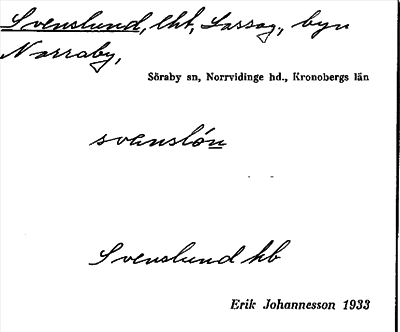 Svenslund, lht, Sassag, byn
Norraby,
Söraby sn, Norrvidinge hd., Kronobergs län
svenslón
Svenslund hb
Erik Johannesson 1933